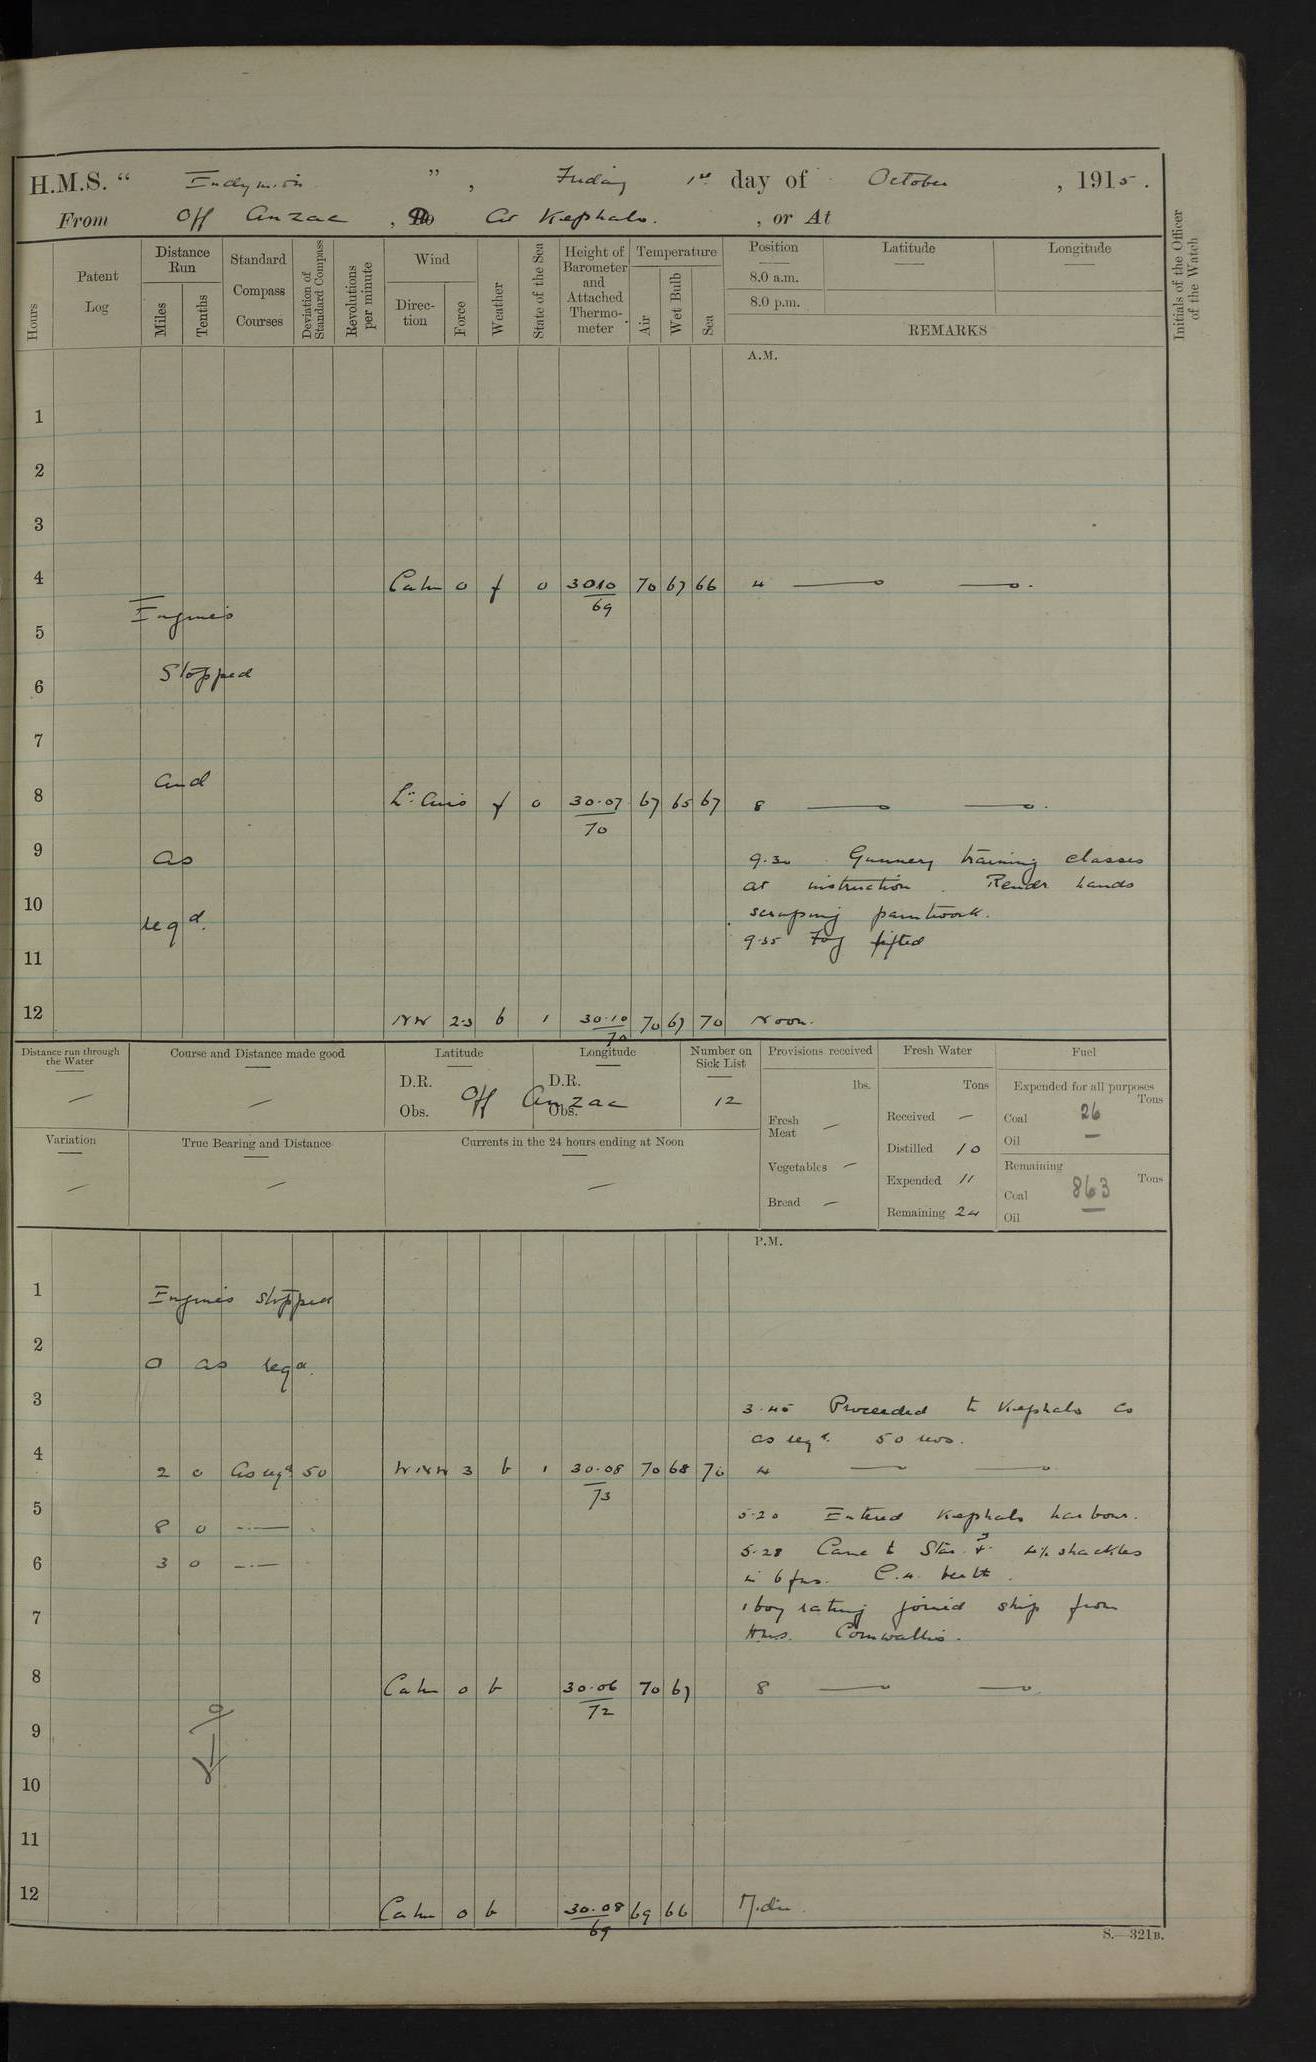 H.M.S. “ Endymion ” , Friday 1st day of October , 1915 .
From Off Anzac , To At Kephalo. , or At
Hours
Patent Log
Distance Run
Miles
Tenths
Standard Compass Courses
Deviation of Standard Compass
Revolutions per minute
Wind
Direction
Force
Weather
State of the Sea
Height of Barometer and Attached Thermometer
Temperature
Air
Wet Bulb
Sea
Position
Latitude
Longitude
8.0 a.m.
8.0 p.m.
REMARKS
Initials of the Officer of the Watch
A.M.
1
2
3
4 Calm 0 f 0 3010/69 70 67 66 4
Engines
5
Stopped
6
7
and
8 Lt. Airs f 0 30.07/70 67 65 67 8
9 as 9.30 Gunnery training classes
at instruction. Remdr hands
10 reqd. scraping paintwork.
9.35 Fog lifted
11
12 NW 2-3 b 1 30.10/70 70 67 70 Noon.
Distance run through the Water
—
Course and Distance made good
—
Latitude
D.R.
Obs.
Longitude
D.R.
Obs.
Off Anzac
Number on Sick List
12
Provisions received
lbs.
Fresh Meat —
Vegetables —
Bread —
Fresh Water
Tons
Received —
Distilled 10
Expended 11
Remaining 24
Fuel
Expended for all purposes
Tons
Coal 26
Oil —
Remaining
Tons
Coal 863
Oil —
Variation
—
True Bearing and Distance
—
Currents in the 24 hours ending at Noon
—
P.M.
1 Engines stopped
2
as reqd.
3
3.45 Proceeded to Kephalo Co
as reqd. 50 revs.
4 2 0 As reqd 50 WNW 3 b 1 30.08/73 70 68 70 4
5 8 0 5.20 Entered Kephalo harbour.
5.28 Came to Star. 4½ shackles
6 3 0
in 6 fms. berth.
1 boy rating joined ship from
7
HMS. Cornwallis.
8 Calm 0 b 30.06/72 70 67 8
9
10
11
12 Calm 0 b 30.08/69 69 66 Mdn.
S.—321B.